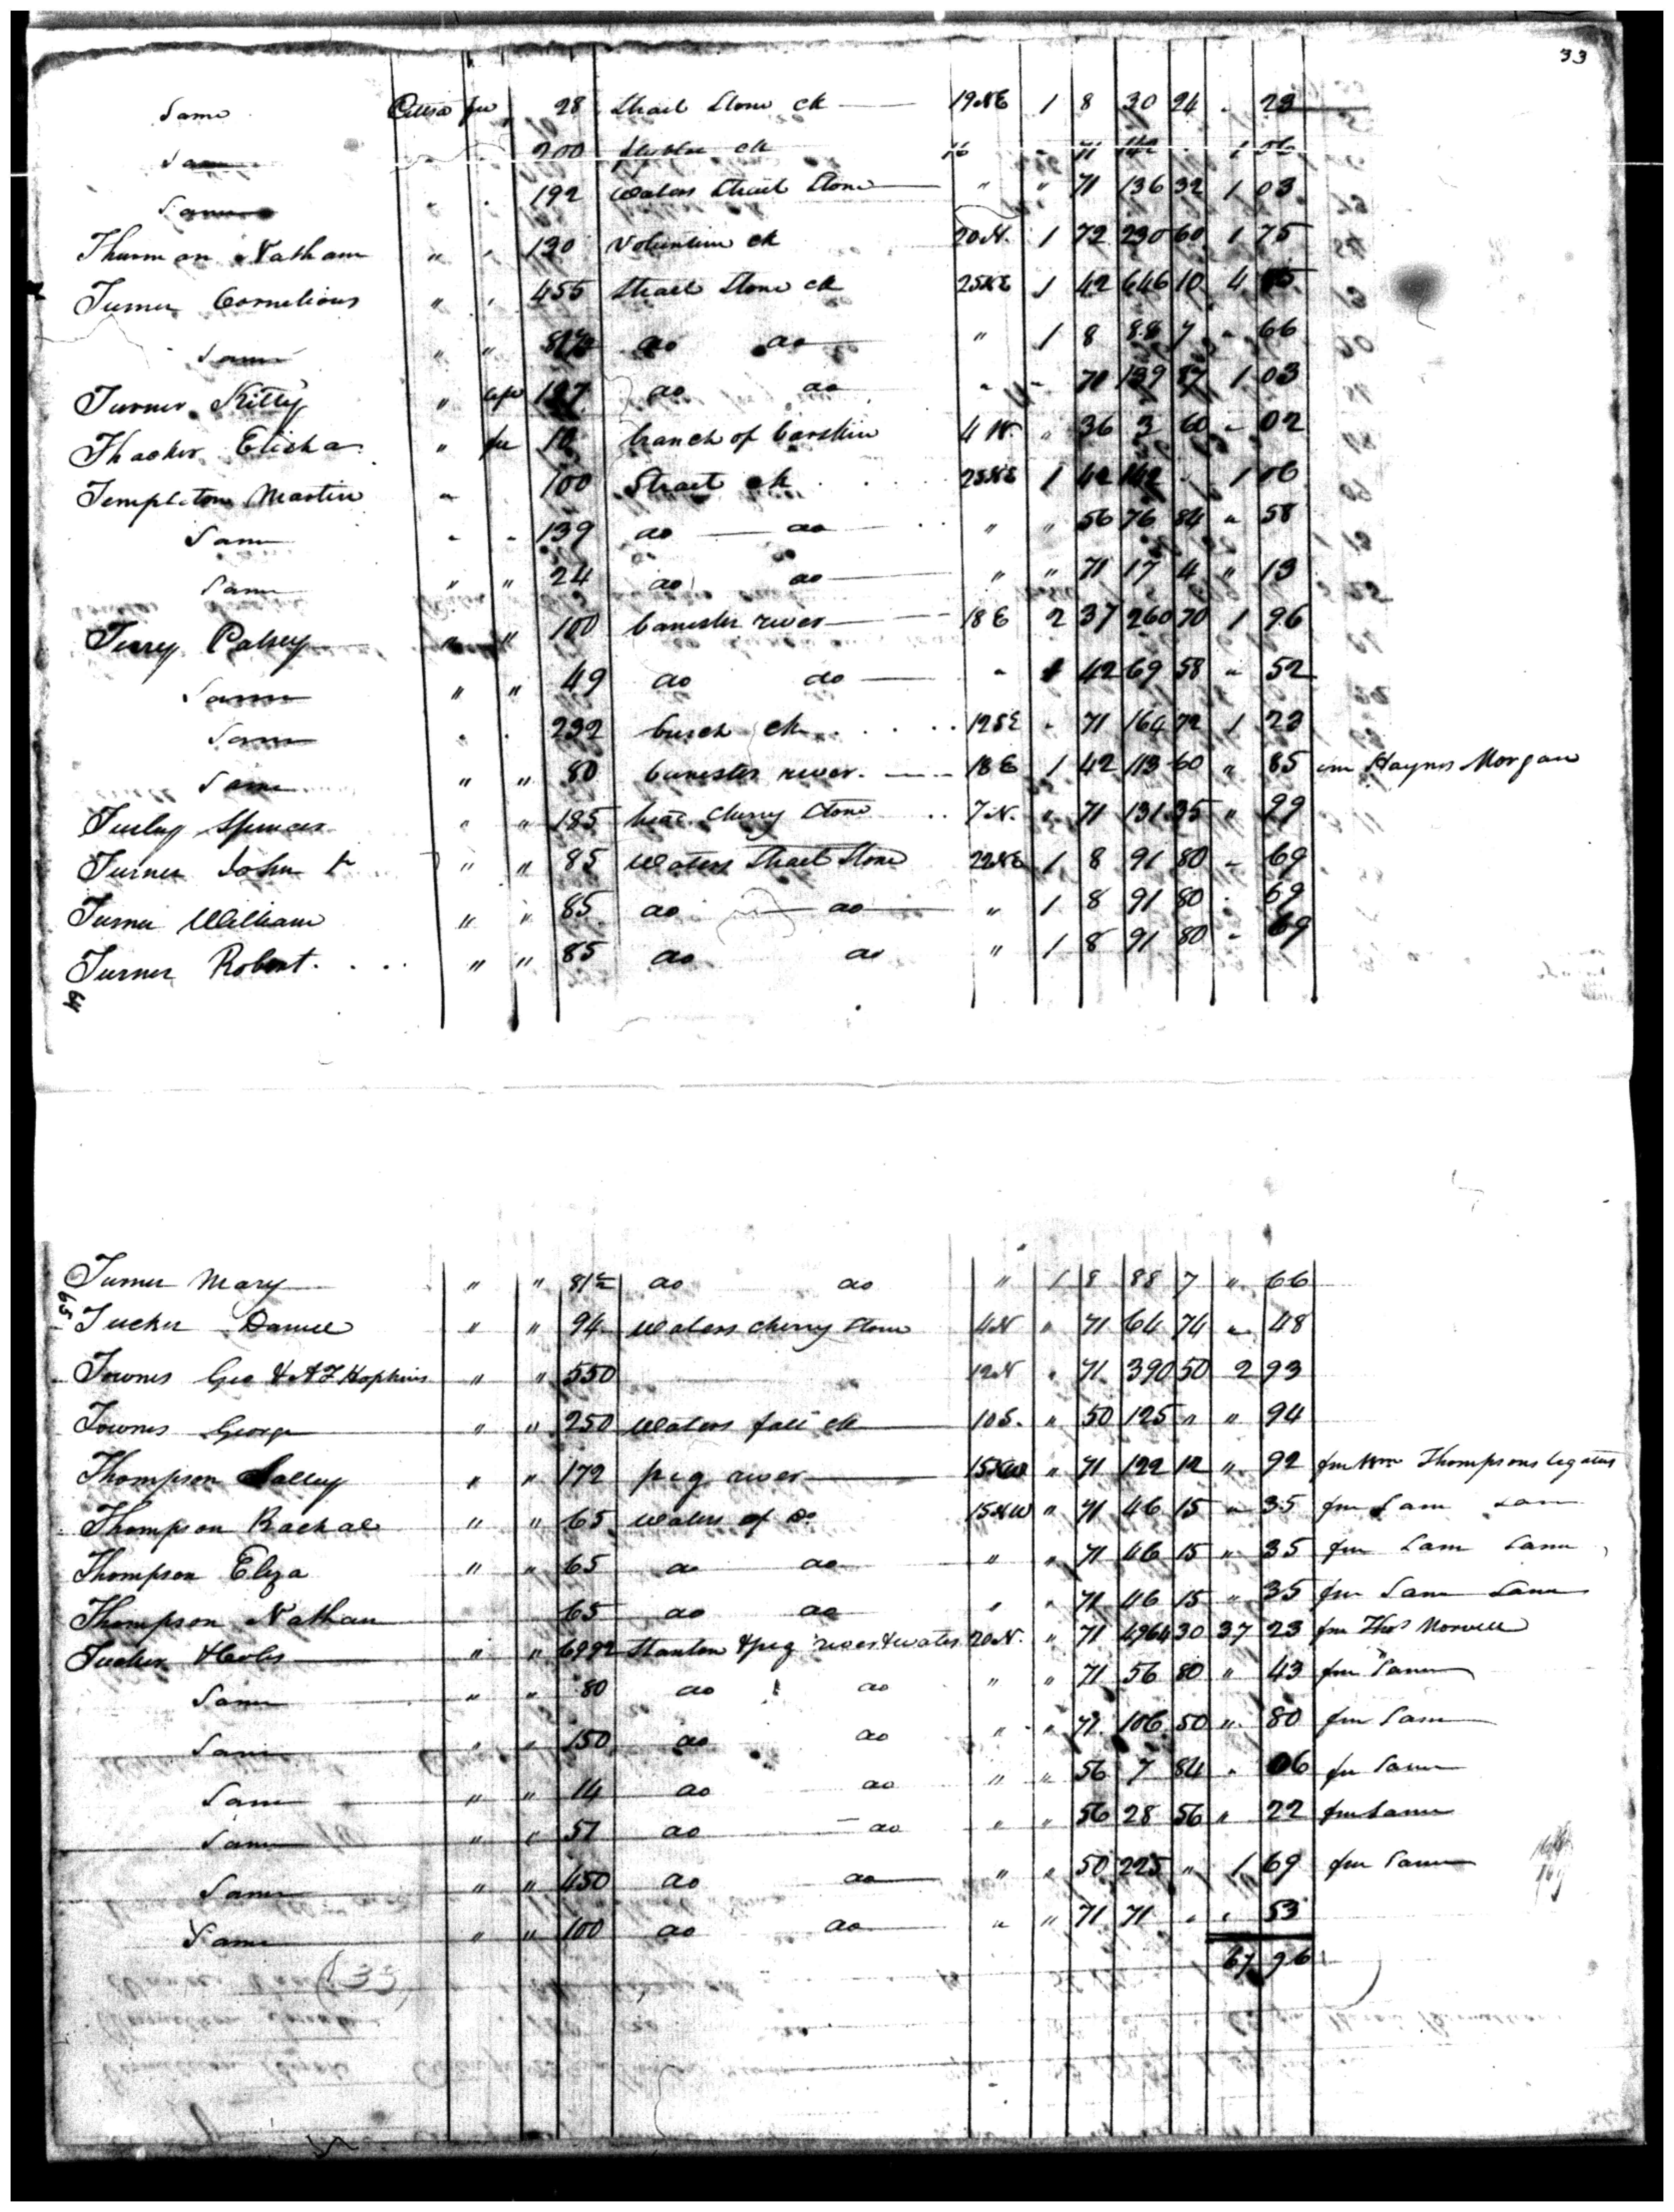 33
Same fee 28 Strait Stone ck 19 NE 1 8 30 24 " 23
Same " " 200 ck 16 " 71 142 " 1 06
Same " " 192 Waters Strait Stone " " 71 136 32 1 03
Thurman Nathan " " 130 ck 20 N. 1 72 230 60 1 75
Turner Cornelious " " 455 Strait Stone ck 25 NE 1 42 646 10 4
Same " " 81 1/2 do do " 1 8 88 7 " 66
Turner Kitty " 197 do do " " 71 139 87 1 03
Thacker Elisha " fee 10 branch of 4 N. " 36 3 60 " 02
Templeton Martin " 100 Strait ck 25 NE 1 42 142 " 1 06
Same " " 139 do do " " 56 76 84 " 58
Same " " 24 do do " " 71 17 4 " 13
Terry Patsey " " 100 banister river 18 E 2 37 260 70 1 96
Same " " 49 do do " 1 42 69 58 " 52
Same " " 232 ck 12 SE " 71 164 72 1 23
Same " " 80 banister river 18 E 1 42 113 60 " 85 im Haynes Morgan
Spencer " " 185 head Cherry Stone 7 N. " 71 131 35 " 99
Turner John " " 85 Waters Strait Stone 22 NE 1 8 91 80 " 69
Turner William " " 85 do do " 1 8 91 80 " 69
Turner Robert " " 85 do do " 1 8 91 80 " 69
64
65
Turner Mary " " 81 1/2 do do " 1 8 88 7 " 66
Tucker Daniel " " 94 Waters Cherry Stone 4 N " 71 66 74 " 48
Townes Geo & A Z Hopkins " " 550 12 N " 71 390 50 2 93
Townes George " " 250 Waters fall ck 10 S. " 50 125 " " 94
Thompson Salley " " 172 pig river 15 NW " 71 122 12 " 92 fm Wm Thompsons legatus
Thompson Rachal " " 65 Waters of Do 15 NW " 71 46 15 " 35 fm Sam Sam
Thompson Eliza " " 65 do do " " 71 46 15 " 35 fm Sam Same
Thompson Nathan 65 do do " " 71 46 15 " 35 fm Same Same
Tucker " " 6992 Stanton & pig river & waters 20 N. " 71 4964 30 37 23 fm Thos Norvell
Same " " 80 do do " " 71 56 80 " 43 fm Same
Same " " 150 do do " " 71 106 50 " 80 fm Same
Same " " 14 do do " " 56 7 84 " 06 fm Same
Same " " 51 do do " " 56 28 56 " 22 fm Same
Same " " 450 do do " " 50 225 " 1 69 fm Same
Same " " 100 do do " " 71 71 " " 53
67 96
33